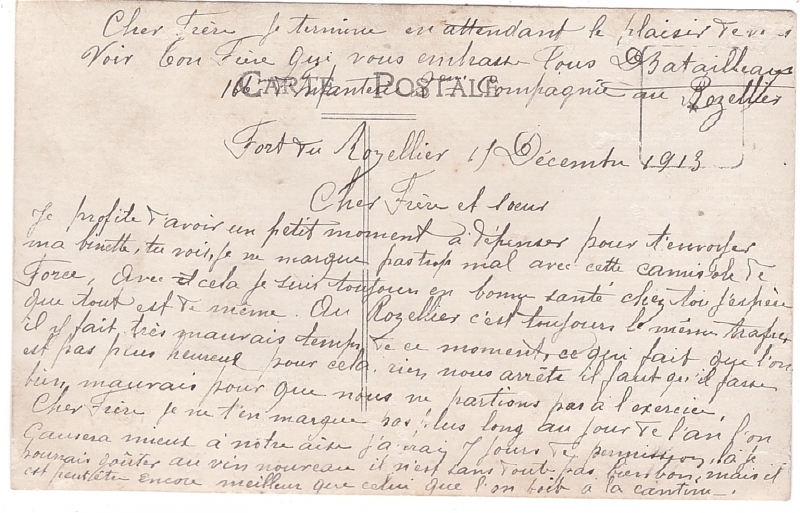 Cher Frère je termine en attendant le plaisir de vous
Voir Ton Frère qui vous embrasse Tous DBatailleau
166me Infanterie 8me Compagnie au Rozellier
CARTE POSTALE
Fort du Rozellier 15 Décembre 1913
Cher Frère et Soeur
Je profite d'avoir un petit moment à dépenser pour t'envoyer
ma binette, tu vois, je ne marque pas trop mal avec cette camisole de
Force, Avec cela je suis toujours en bonne santé chez toi j'espère
que tout est de même. Au Rozellier c'est toujours le même trafic
il y fait très mauvais temps, de ce moment, ce qui fait que l'on
est pas plus heureux pour cela, rien nous arrête il faut qu'il fasse
bien mauvais pour que nous ne partions pas à l'exercice,
Cher Frère je ne t'en marque pas plus long au jour de l'an l'on
Causera mieux à notre aise j'aurai 7 jours de permission, là je
pourrais goûter au vin nouveau il n'est sans doute pas bien bon, mais il
est peut être encore meilleur que celui que l'on boit à la cantine.